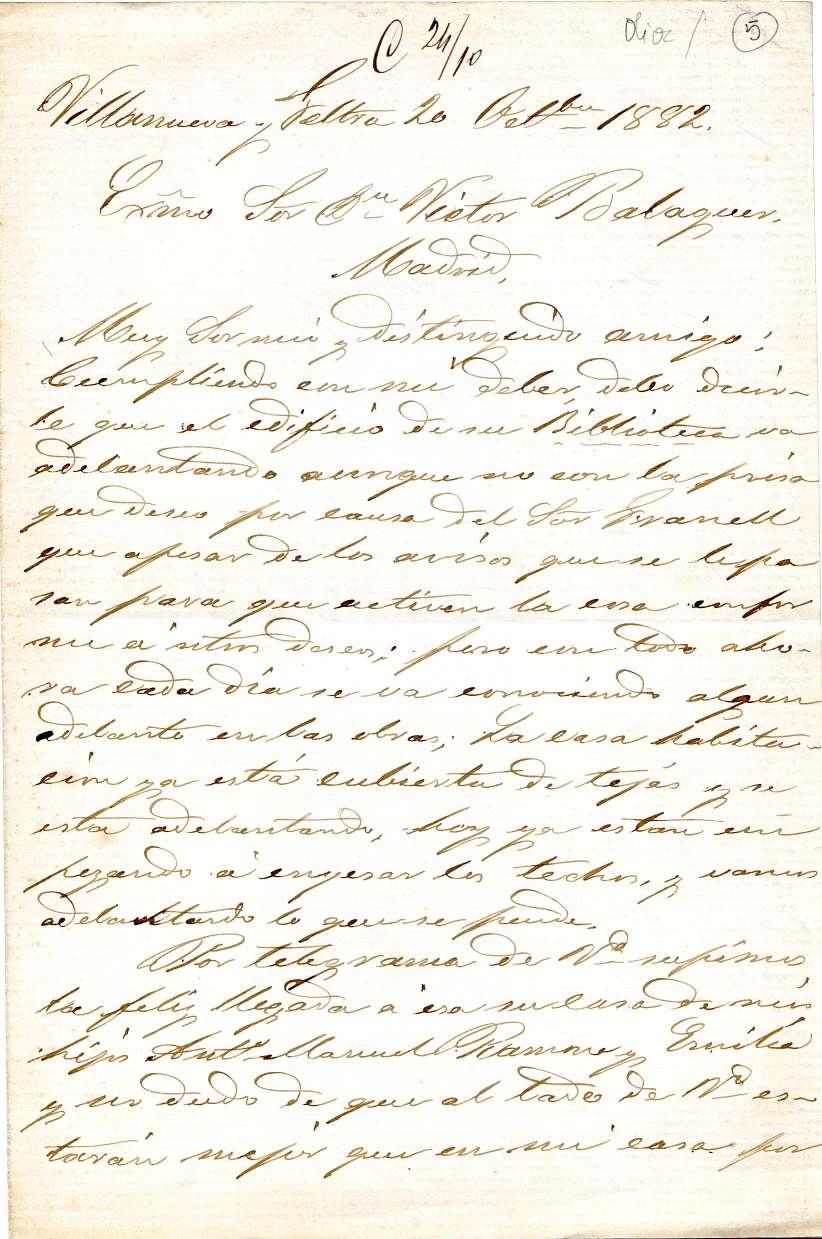 C 24/10
5
Villanueva y Geltrú 20 Octbre 1882.
Exmo Sor Dn Victor Balaguer.
Madrid,
Muy Sor mio y distinguido amigo;
Cumpliendo con mi deber, debo decir-
le que el edificio de su Biblioteca va
adelantando aunque no con la prisa
que deseo por causa del Sor Granell
que apesar de los avisos que se le pa
san para que activen la cosa confor
me á ntros deseos; pero con todo aho-
ra cada día se va conociendo algun
adelanto en las obras; La casa habita-
cion ya está cubierta de tejas y se
está adelantando, hoy ya estan em
pezando a enyesar los techos, y vamos
adelantando lo que se puede.
Por telegrama de Vd supimos
la feliz llegada a esa su casa de mis
hijos Antº Manuel Ramona y Emilia
y no dudo de que al lado de Vd es-
tarán mejor que en mi casa por